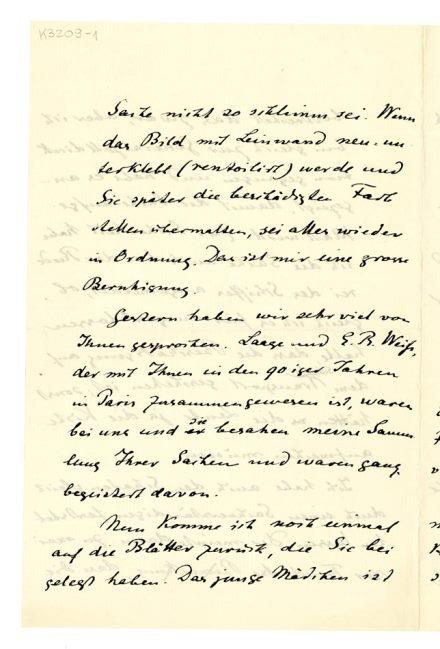 K3209-1
Sache nicht so schlimm sei. Wenn
das Bild mit Leinwand neu un-
terklebt (rentoilirt) werde und
Sie später die beschädigten Farb
stellen übermalten, sei alles wieder
in Ordnung. Das ist mir eine grosse
Beruhigung.
Gestern haben wir sehr viel von
Ihnen gesprochen. Laage und E. R. Weiss,
der mit Ihnen in den 90iger Jahren
in Paris zusammengewesen ist, waren
bei uns und die besahen meine Samm
lung Ihrer Sachen und waren ganz
begeistert davon.
Nun komme ich noch einmal
auf die Blätter zurück, die Sie bei
gelegt haben. Das junge Mädchen ist